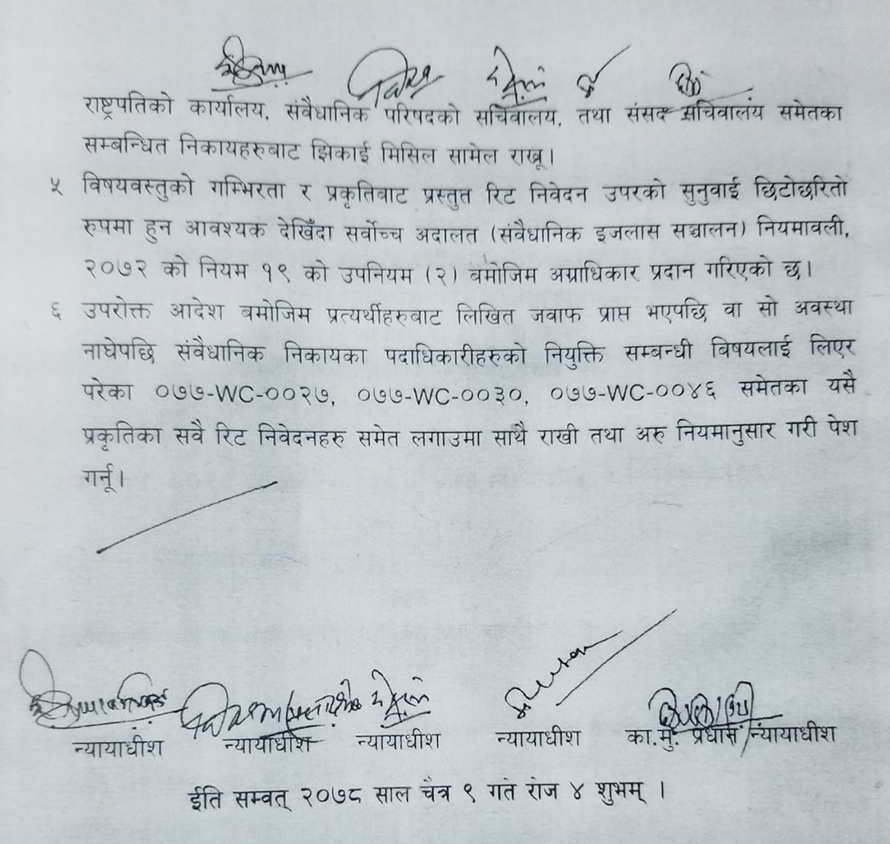 राष्ट्रपतिको कार्यालय, संवैधानिक परिषदको सचिवालय, तथा संसद सचिवालय समेतका
सम्बन्धित निकायहरुबाट झिकाई मिसिल सामेल राख्नू।
५ विषयवस्तुको गम्भिरता र प्रकृतिबाट प्रस्तुत रिट निवेदन उपरको सुनुवाई छिटोछरितो
रुपमा हुन आवश्यक देखिँदा सर्वोच्च अदालत (संवैधानिक इजलास सञ्चालन) नियमावली,
२०७२ को नियम १९ को उपनियम (२) बमोजिम अग्राधिकार प्रदान गरिएको छ।
६ उपरोक्त आदेश बमोजिम प्रत्यर्थीहरुबाट लिखित जवाफ प्राप्त भएपछि वा सो अवस्था
नाघेपछि संवैधानिक निकायका पदाधिकारीहरुको नियुक्ति सम्बन्धी विषयलाई लिएर
परेका ०७७-WC-००२७, ०७७-WC-००३०, ०७७-WC-००४६ समेतका यसै
प्रकृतिका सवै रिट निवेदनहरु समेत लगाउमा साथै राखी तथा अरु नियमानुसार गरी पेश
गर्नू।
न्यायाधीश न्यायाधीश न्यायाधीश न्यायाधीश का.मु. प्रधान न्यायाधीश
ईति सम्वत् २०७८ साल चैत्र ९ गते रोज ४ शुभम् ।